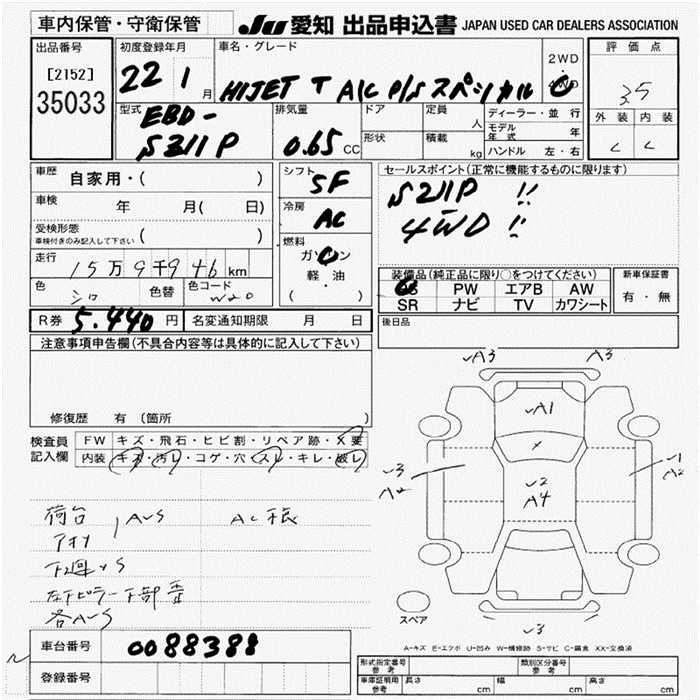 車内保管・守衛保管
JU 愛知 出品申込書 JAPAN USED CAR DEALERS ASSOCIATION
出品番号
[2152]
35033
初度登録年月
22 1 月
車名・グレード
HIJET T A/C P/S スペシャル
2WD
4WD
評価点
3.5
外装 内装
C C
型式
EBD-
S211P
排気量
0.65 CC
ドア
形状
定員 人
積載 kg
ディーラー・並行
モデル年式 年
ハンドル 左・右
車歴 自家用・( )
車検 年 月( 日)
受検形態
車検付きのみ記入して下さい ( )
走行 15万9千946km
色 シロ 色替 色コード W20
シフト
5F
冷房
AC
燃料
ガソリン
軽・油
( )
セールスポイント(正常に機能するものに限ります)
S211P !!
4WD !!
装備品(純正品に限り○をつけてください)
PS PW エアB AW
SR ナビ TV カワシート
新車保証書
有・無
後日品
R券 5.440 円 名変通知期限 月 日
注意事項申告欄(不具合内容等は具体的に記入して下さい)
修復歴 有 (箇所
検査員記入欄
FW キズ・飛石・ヒビ割・リペア跡・X要
内装 キズ・汚レ・コゲ・穴・スレ・キレ・破レ
荷台
アオリ
AUS AC根
下廻US
左下ピラー下部歪
各AUS
A3 A3
A1
X
3
A2
2
A4
1
A2
3
スペア
A-キズ E-エクボ U-凹み W-補修跡 S-サビ C-腐食 XX-交換済
車台番号 0088388
登録番号
型式指定番号
参考
類別区分番号
参考
車庫証明用
参考
長さ cm 幅 cm 高さ cm